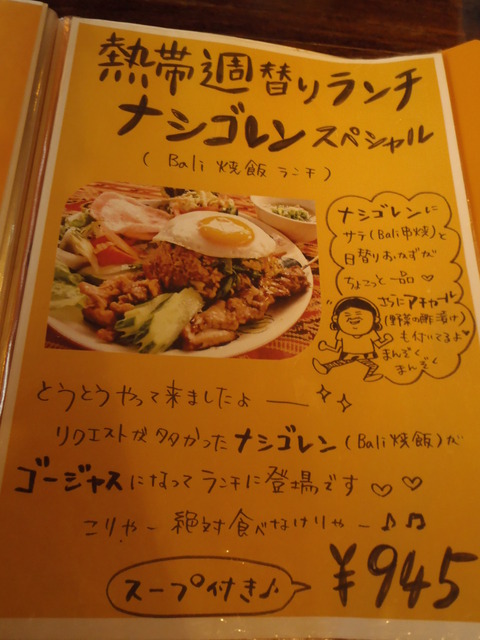 熱帯週替りランチ
ナシゴレンスペシャル
(Bali 焼飯 ランチ)
ナシゴレンに
サテ(Bali串焼)と
日替りおかずが
ちょこっと一品♡
さらにアチャール
(野菜の酢漬け)
も付いてるよ♥
まんぞく
まんぞく
とうとうやって来ましたよ ――
リクエストが多かったナシゴレン(Bali焼飯)が
ゴージャスになってランチに登場です♡♡
こりゃー絶対食べなけりゃー♪♫
スープ付き♪
¥945